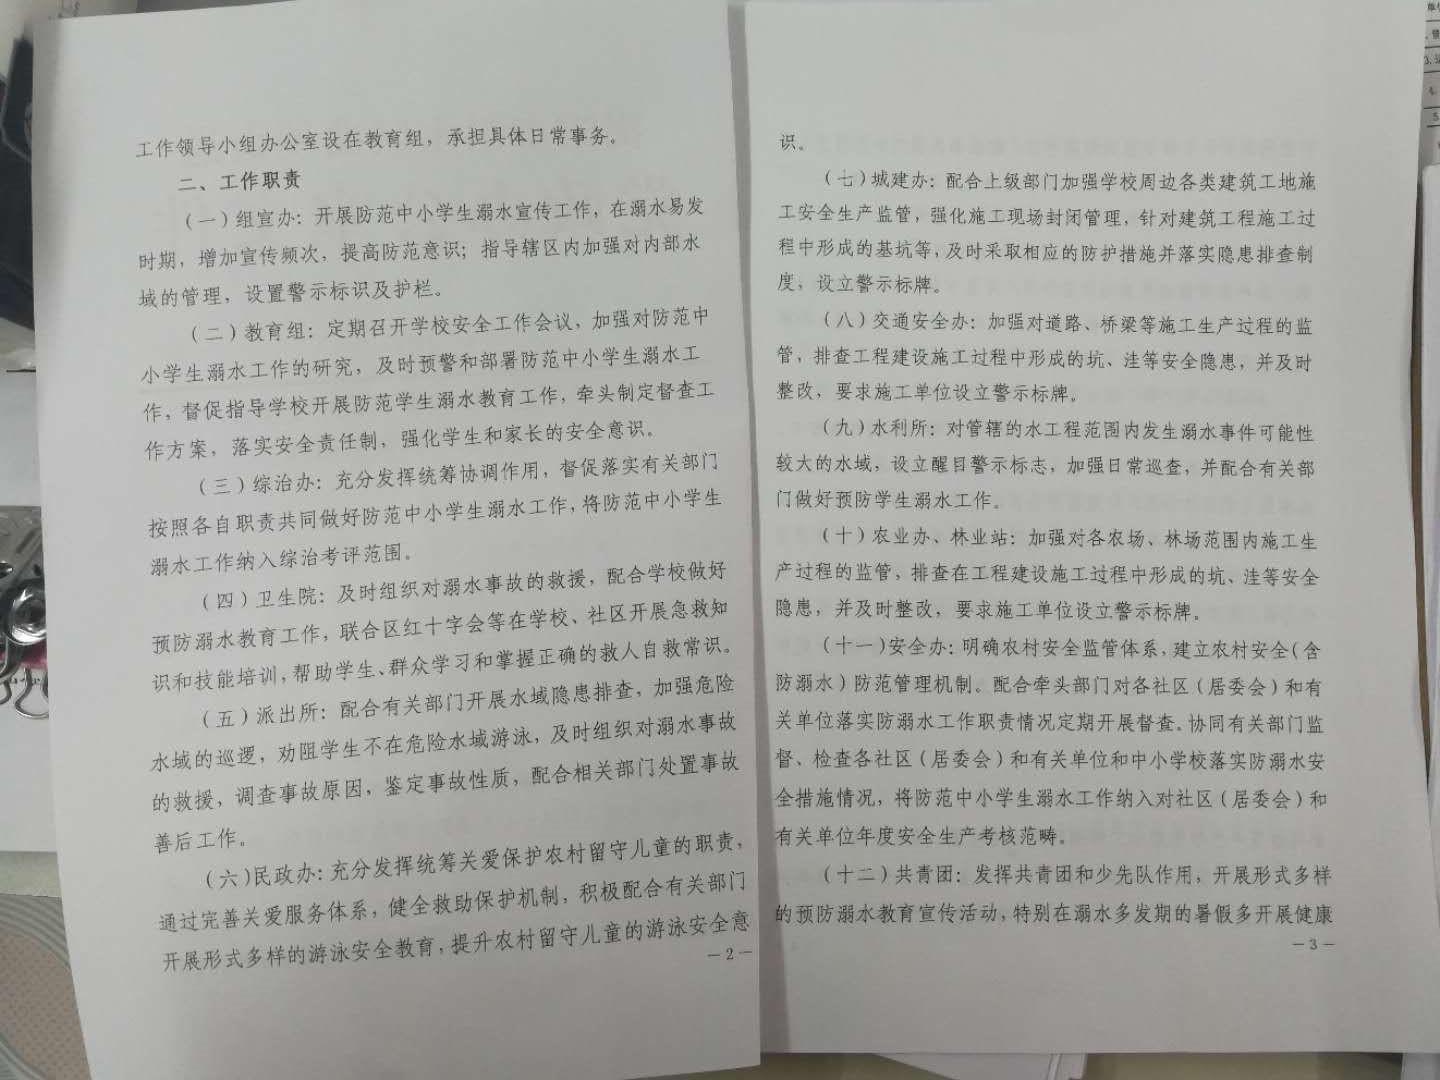 工作领导小组办公室设在教育组，承担具体日常事务。
二、工作职责
（一）组宣办：开展防范中小学生溺水宣传工作，在溺水易发
时期，增加宣传频次，提高防范意识；指导辖区内加强对内部水
域的管理，设置警示标识及护栏。
（二）教育组：定期召开学校安全工作会议，加强对防范中
小学生溺水工作的研究，及时预警和部署防范中小学生溺水工
作，督促指导学校开展防范学生溺水教育工作，牵头制定督查工
作方案，落实安全责任制，强化学生和家长的安全意识。
（三）综治办：充分发挥统筹协调作用，督促落实有关部门
按照各自职责共同做好防范中小学生溺水工作，将防范中小学生
溺水工作纳入综治考评范围。
（四）卫生院：及时组织对溺水事故的救援，配合学校做好
预防溺水教育工作，联合区红十字会等在学校、社区开展急救知
识和技能培训，帮助学生、群众学习和掌握正确的救人自救常识。
（五）派出所：配合有关部门开展水域隐患排查，加强危险
水域的巡逻，劝阻学生不在危险水域游泳，及时组织对溺水事故
的救援，调查事故原因，鉴定事故性质，配合相关部门处置事故
善后工作。
（六）民政办：充分发挥统筹关爱保护农村留守儿童的职责，
通过完善关爱服务体系，健全救助保护机制，积极配合有关部门
开展形式多样的游泳安全教育，提升农村留守儿童的游泳安全意
—2—
识。
（七）城建办：配合上级部门加强学校周边各类建筑工地施
工安全生产监管，强化施工现场封闭管理，针对建筑工程施工过
程中形成的基坑等，及时采取相应的防护措施并落实隐患排查制
度，设立警示标牌。
（八）交通安全办：加强对道路、桥梁等施工生产过程的监
管，排查工程建设施工过程中形成的坑、洼等安全隐患，并及时
整改，要求施工单位设立警示标牌。
（九）水利所：对管辖的水工程范围内发生溺水事件可能性
较大的水域，设立醒目警示标志，加强日常巡查，并配合有关部
门做好预防学生溺水工作。
（十）农业办、林业站：加强对各农场、林场范围内施工生
产过程的监管，排查在工程建设施工过程中形成的坑、洼等安全
隐患，并及时整改，要求施工单位设立警示标牌。
（十一）安全办：明确农村安全监管体系，建立农村安全（含
防溺水）防范管理机制。配合牵头部门对各社区（居委会）和有
关单位落实防溺水工作职责情况定期开展督查。协同有关部门监
督、检查各社区（居委会）和有关单位和中小学校落实防溺水安
全措施情况，将防范中小学生溺水工作纳入对社区（居委会）和
有关单位年度安全生产考核范畴。
（十二）共青团：发挥共青团和少先队作用，开展形式多样
的预防溺水教育宣传活动，特别在溺水多发期的暑假多开展健康
—3—